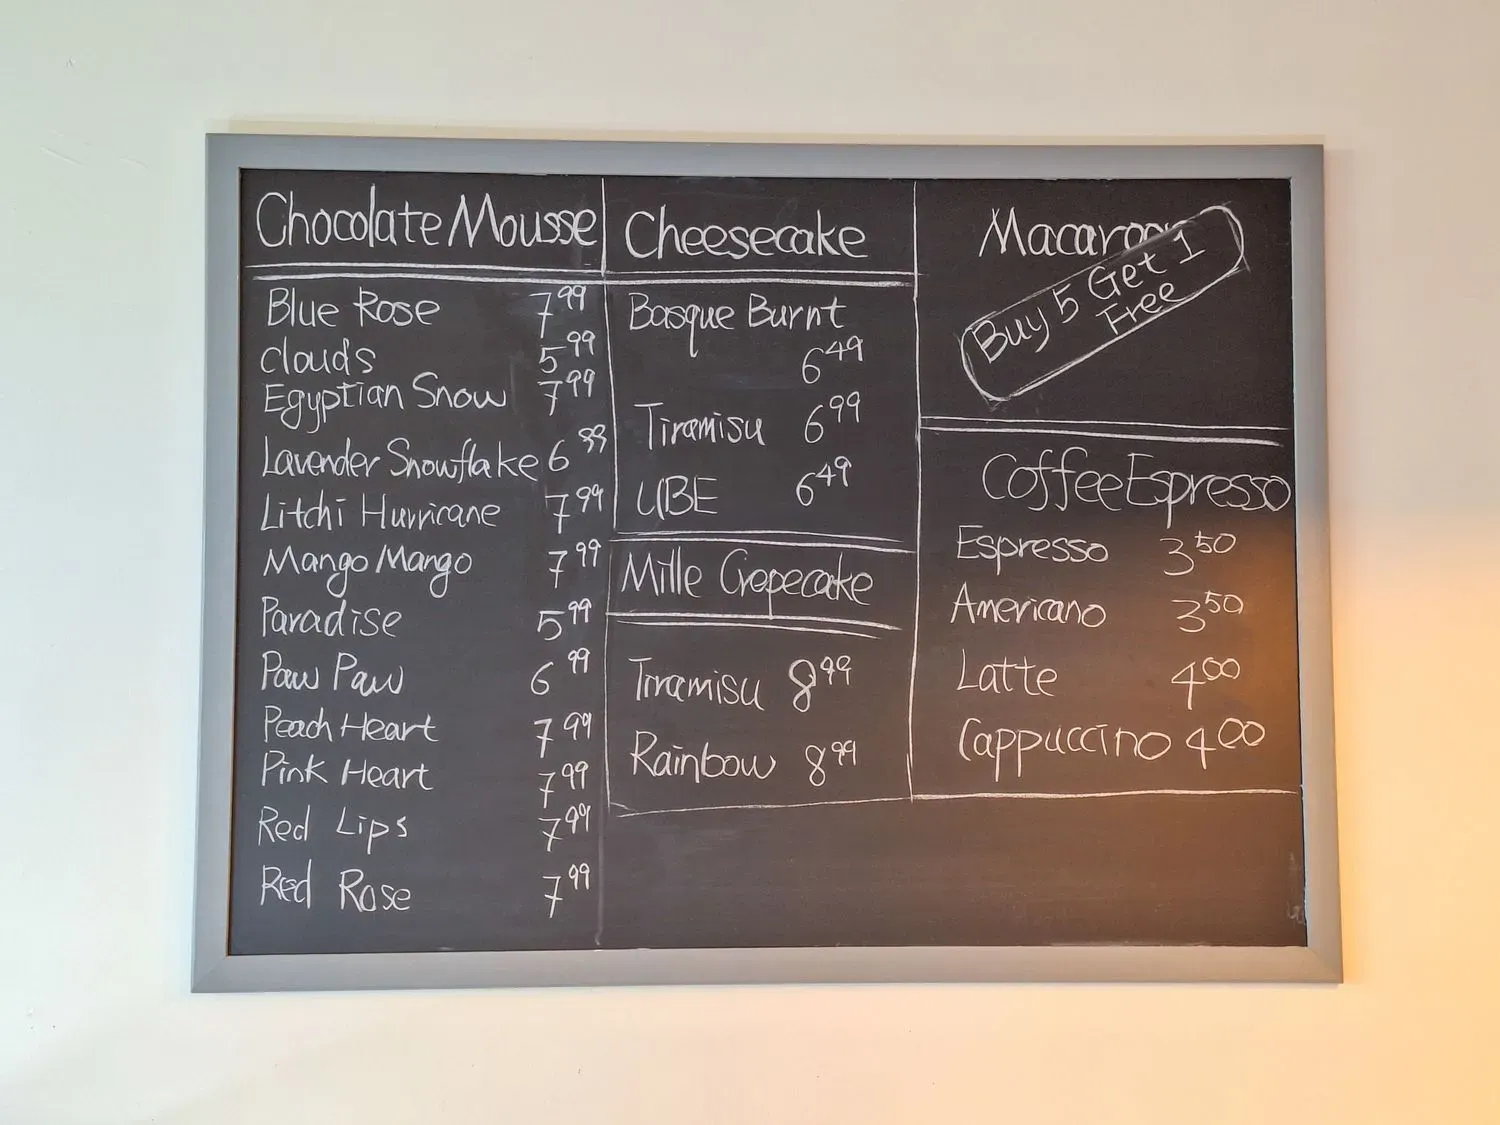 Chocolate Mousse
Blue Rose 7.99
clouds 5.99
Egyptian Snow 7.99
Lavender Snowflake 6.99
Litchi Hurricane 7.99
Mango Mango 7.99
Paradise 5.99
Paw Paw 6.99
Peach Heart 7.99
Pink Heart 7.99
Red Lips 7.99
Red Rose 7.99
Cheesecake
Basque Burnt
6.49
Tiramisu 6.99
UBE 6.49
Mille Crepecake
Tiramisu 8.99
Rainbow 8.99
Macaroon
Buy 5 Get 1
Free
Coffee Espresso
Espresso 3.50
Americano 3.50
Latte 4.00
Cappuccino 4.00